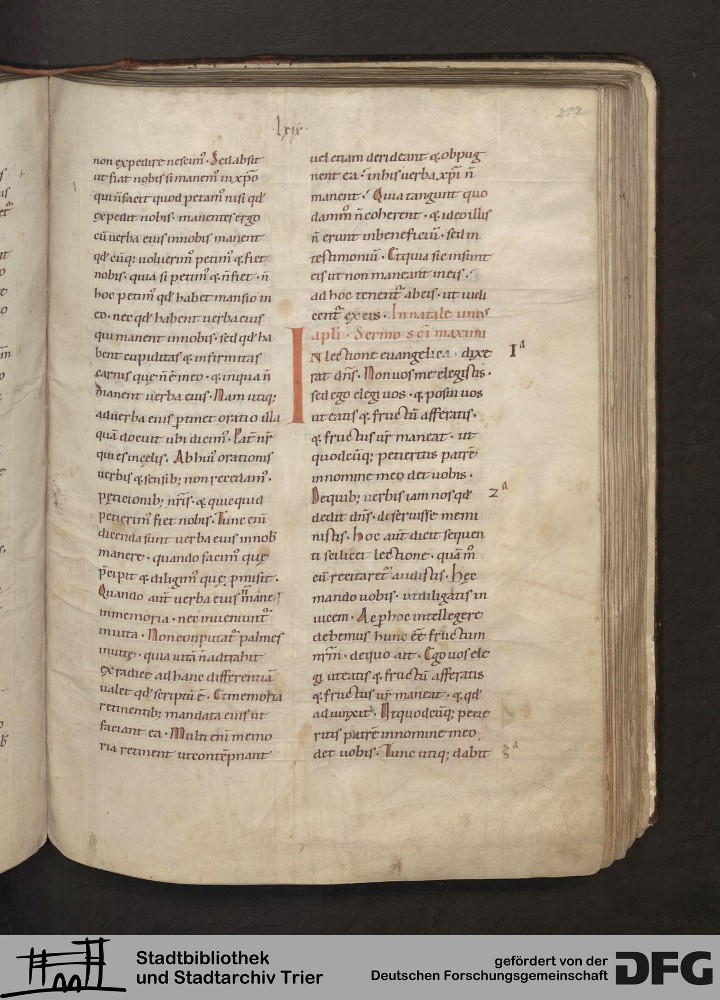 ·lxix·
217
non expedire nescim᷒· Sed absit
ut fiat nobis si manem᷒ in xp̄o
qui n̄ facit quod petam᷒ nisi qd̄
expedit nobis· manentes ergo
cū uerba eius in nobis manent
qd̄cūq; uoluerim᷒ petim᷒ & fiet
nobis· quia si petim᷒ & n̄ fiet· n̄
hoc petim᷒ qd̄ habet mansio in
eo· nec qd̄ habent uerba eius
qui manent in nobis· sed qd̄ ha
bent cupiditas & infirmitas
carnis que n̄ ē in eo· & in qua n̄
manent uerba eius· Nam utiq;
ad uerba eius ptinet oratio illa
quā docuit ubi dicim᷒· Pat̄ nr̄
qui es in celis· Ab hui᷒ orationis
uerbis & sensib; non recedam᷒·
peticionib; nr̄is· & quicquid
petierim᷒ fiet nobis· Tunc eni
dicenda sunt uerba eius in nob
manere· quando facim᷒ que
p̄cipit & diligim᷒ que pmisit·
Quando aut̄ uerba eius manent
in memoria· nec inueniunt᷒
in uita· Non conputat᷒ palmes
in uite· quia uitā n̄ adtrahit
ex radice ad hanc differentiā
ualet qd̄ scriptū ē· Et memoria
retinentib; mandata eius ut
faciant ea· Multi eni memo
ria retinent ut contēpnant
uel etiam derideant & obpug
nent ea· in his uerba xp̄i n̄
manent· Quia tangunt quo
damm̊ n̄ coherent· & ideo illis
n̄ erunt in beneficiū· sed in
testimoniū· Et quia sic insunt
eis ut non maneant in eis·
ad hoc tenent᷒ ab eis· ut iudi
cent᷒ ex eis· In natale unius
apl̄i· Sermo sc̄i maximi
IN lectione euangelica· dixe
rat dn̄s· Non uos me elegistis·
sed ego elegi uos· & posui uos
ut eatis & fructū afferatis·
& fructus ur̄ maneat· ut
quodcūq; petieritis patrē
in nomine meo det uobis·
De quib; uerbis iam nos qd̄
dedit dn̄s· disseruisse memi
nistis· Hoc aut̄ dicit sequen
ti scilicet lectione· quam m̊
cū recitaret᷒ audistis· Hec
mando uobis· ut diligatis in
uicem· Ac p hoc intellegere
debemus hunc ēē fructum
nr̄m· de quo ait· Ego uos ele
gi ut eatis & fructū afferatis
& fructus ur̄ maneat· & qd̄
adiunxit· Ut quodcūq; petie
ritis patrē in nomine meo
det uobis· Tunc utiq; dabit
Iᵃ
2ᵃ
3ᵃ
Stadtbibliothek
und Stadtarchiv Trier
gefördert von der
Deutschen Forschungsgemeinschaft
DFG